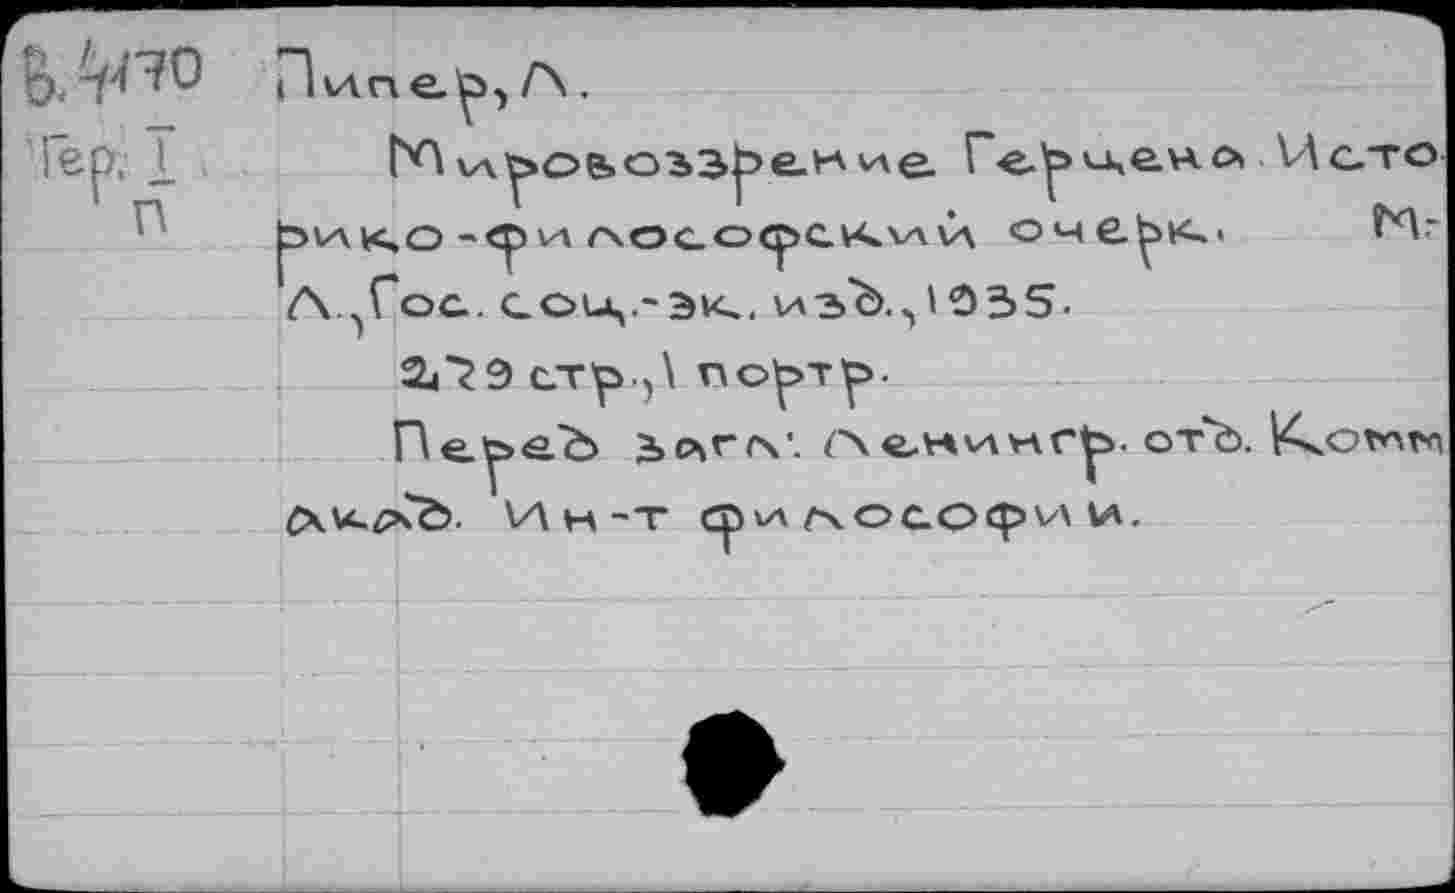 В.4170 Пипер, Л.
Гер. I Мировоззрение Герцена Исто
П рико-философский очерк. М.-
Л., Гос. соц.-эк. изд., 1935.
279 стр., 1 портр.
Перед загл.: Ленингр. отд. Комм
акад. Ин-т философии.